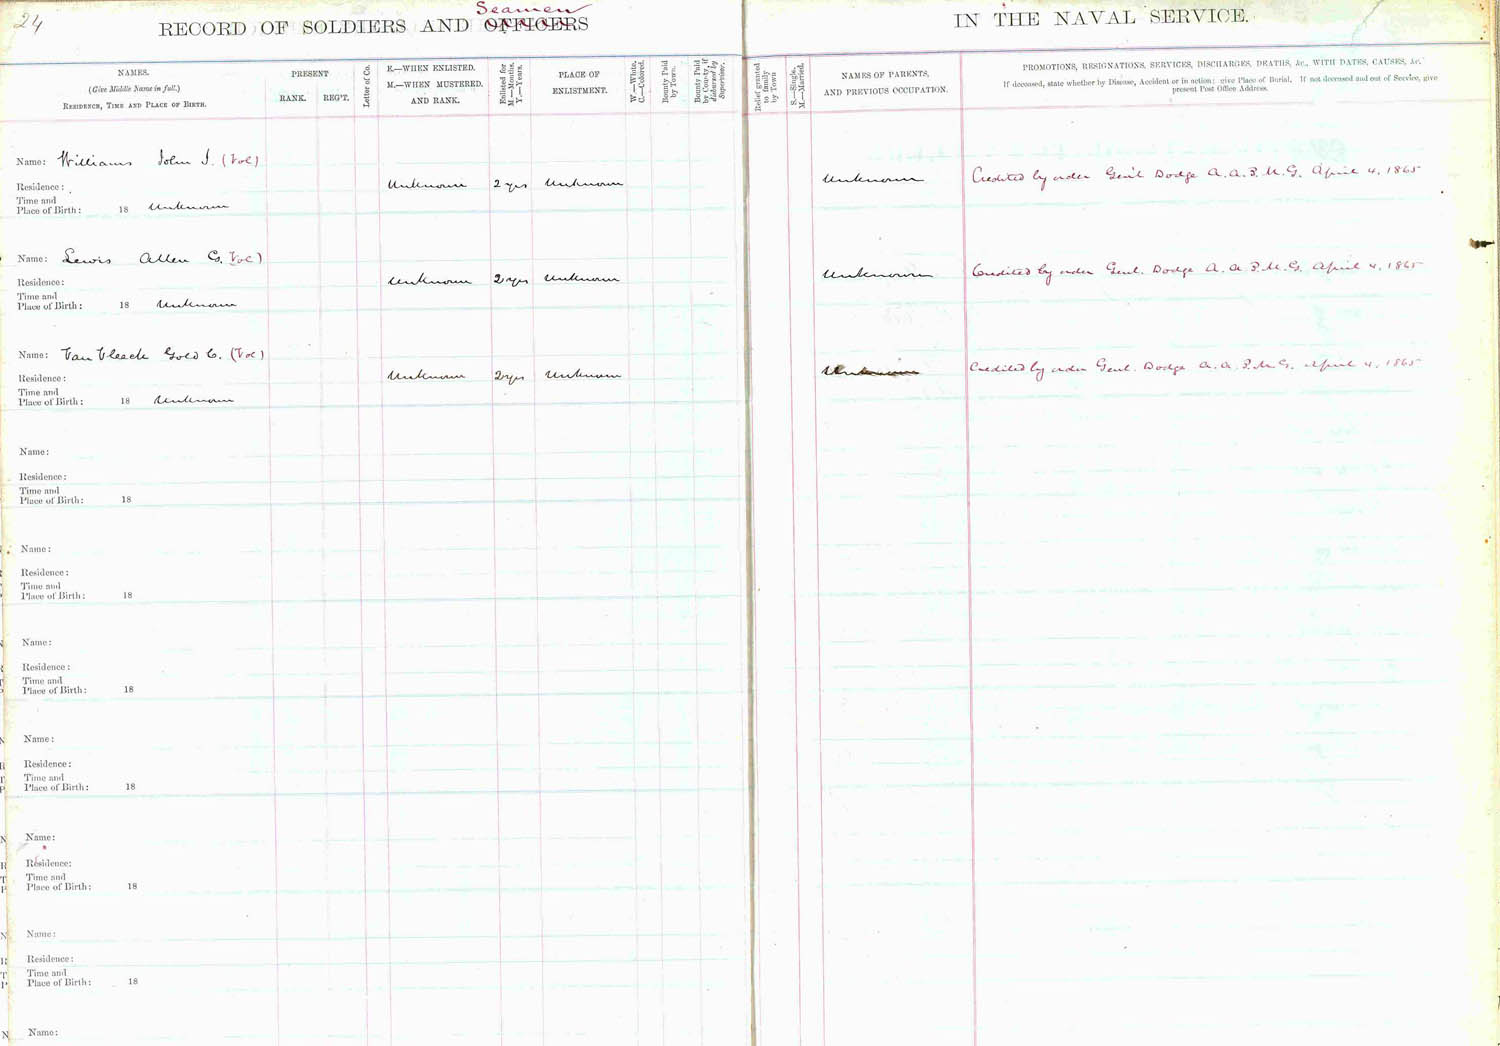 24
Seamen
RECORD OF SOLDIERS AND OFFICERS IN THE NAVAL SERVICE.
NAMES.
(Give Middle Name in full.)
RESIDENCE, TIME AND PLACE OF BIRTH.
PRESENT
RANK. REG'T.
Letter of Co.
E.—WHEN ENLISTED.
M.—WHEN MUSTERED.
AND RANK.
Enlisted for
M.—Months.
Y.—Years.
PLACE OF
ENLISTMENT.
W.—White.
C.—Colored.
Bounty Paid
by Town.
Bounty Paid
by County, if
disbursed by
Supervisor.
Relief granted
to family
by Town
S.—Single.
M.—Married.
NAMES OF PARENTS,
AND PREVIOUS OCCUPATION.
PROMOTIONS, RESIGNATIONS, SERVICES, DISCHARGES, DEATHS, &c., WITH DATES, CAUSES, &c.
If deceased, state whether by Disease, Accident or in action: give Place of Burial. If not deceased and out of Service, give
present Post Office Address.
Name: Williams John J. (Vol)
Residence: Unknown 2 yrs Unknown Unknown Credited by order Gen'l Dodge A.A.P.M.G. April 4, 1865
Time and
Place of Birth: 18 Unknown
Name: Lewis Allen G. Vol)
Residence: Unknown 2 yrs Unknown Unknown Credited by order Genl. Dodge A.A.P.M.G. April 4, 1865
Time and
Place of Birth: 18 Unknown
Name: Van Vleeck Gold C. (Vol)
Residence: Unknown 2 yrs Unknown Unknown Credited by order Genl. Dodge A.A.P.M.G. April 4, 1865
Time and
Place of Birth: 18 Unknown
Name:
Residence:
Time and
Place of Birth: 18
Name:
Residence:
Time and
Place of Birth: 18
Name:
Residence:
Time and
Place of Birth: 18
Name:
Residence:
Time and
Place of Birth: 18
Name:
Residence:
Time and
Place of Birth: 18
Name:
Residence:
Time and
Place of Birth: 18
Name: